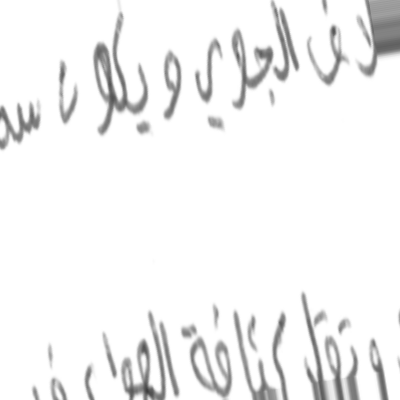 الجوي ويكون
وتقل كثافة الهواء في